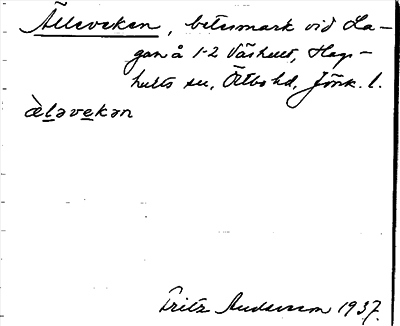 Älleveken, betesmark vid La-
gan å 1-2 Våshult, Hags-
hults sn, Östbo hd, Jönk. l.
àlavekan
Fritz Andersson 1937.